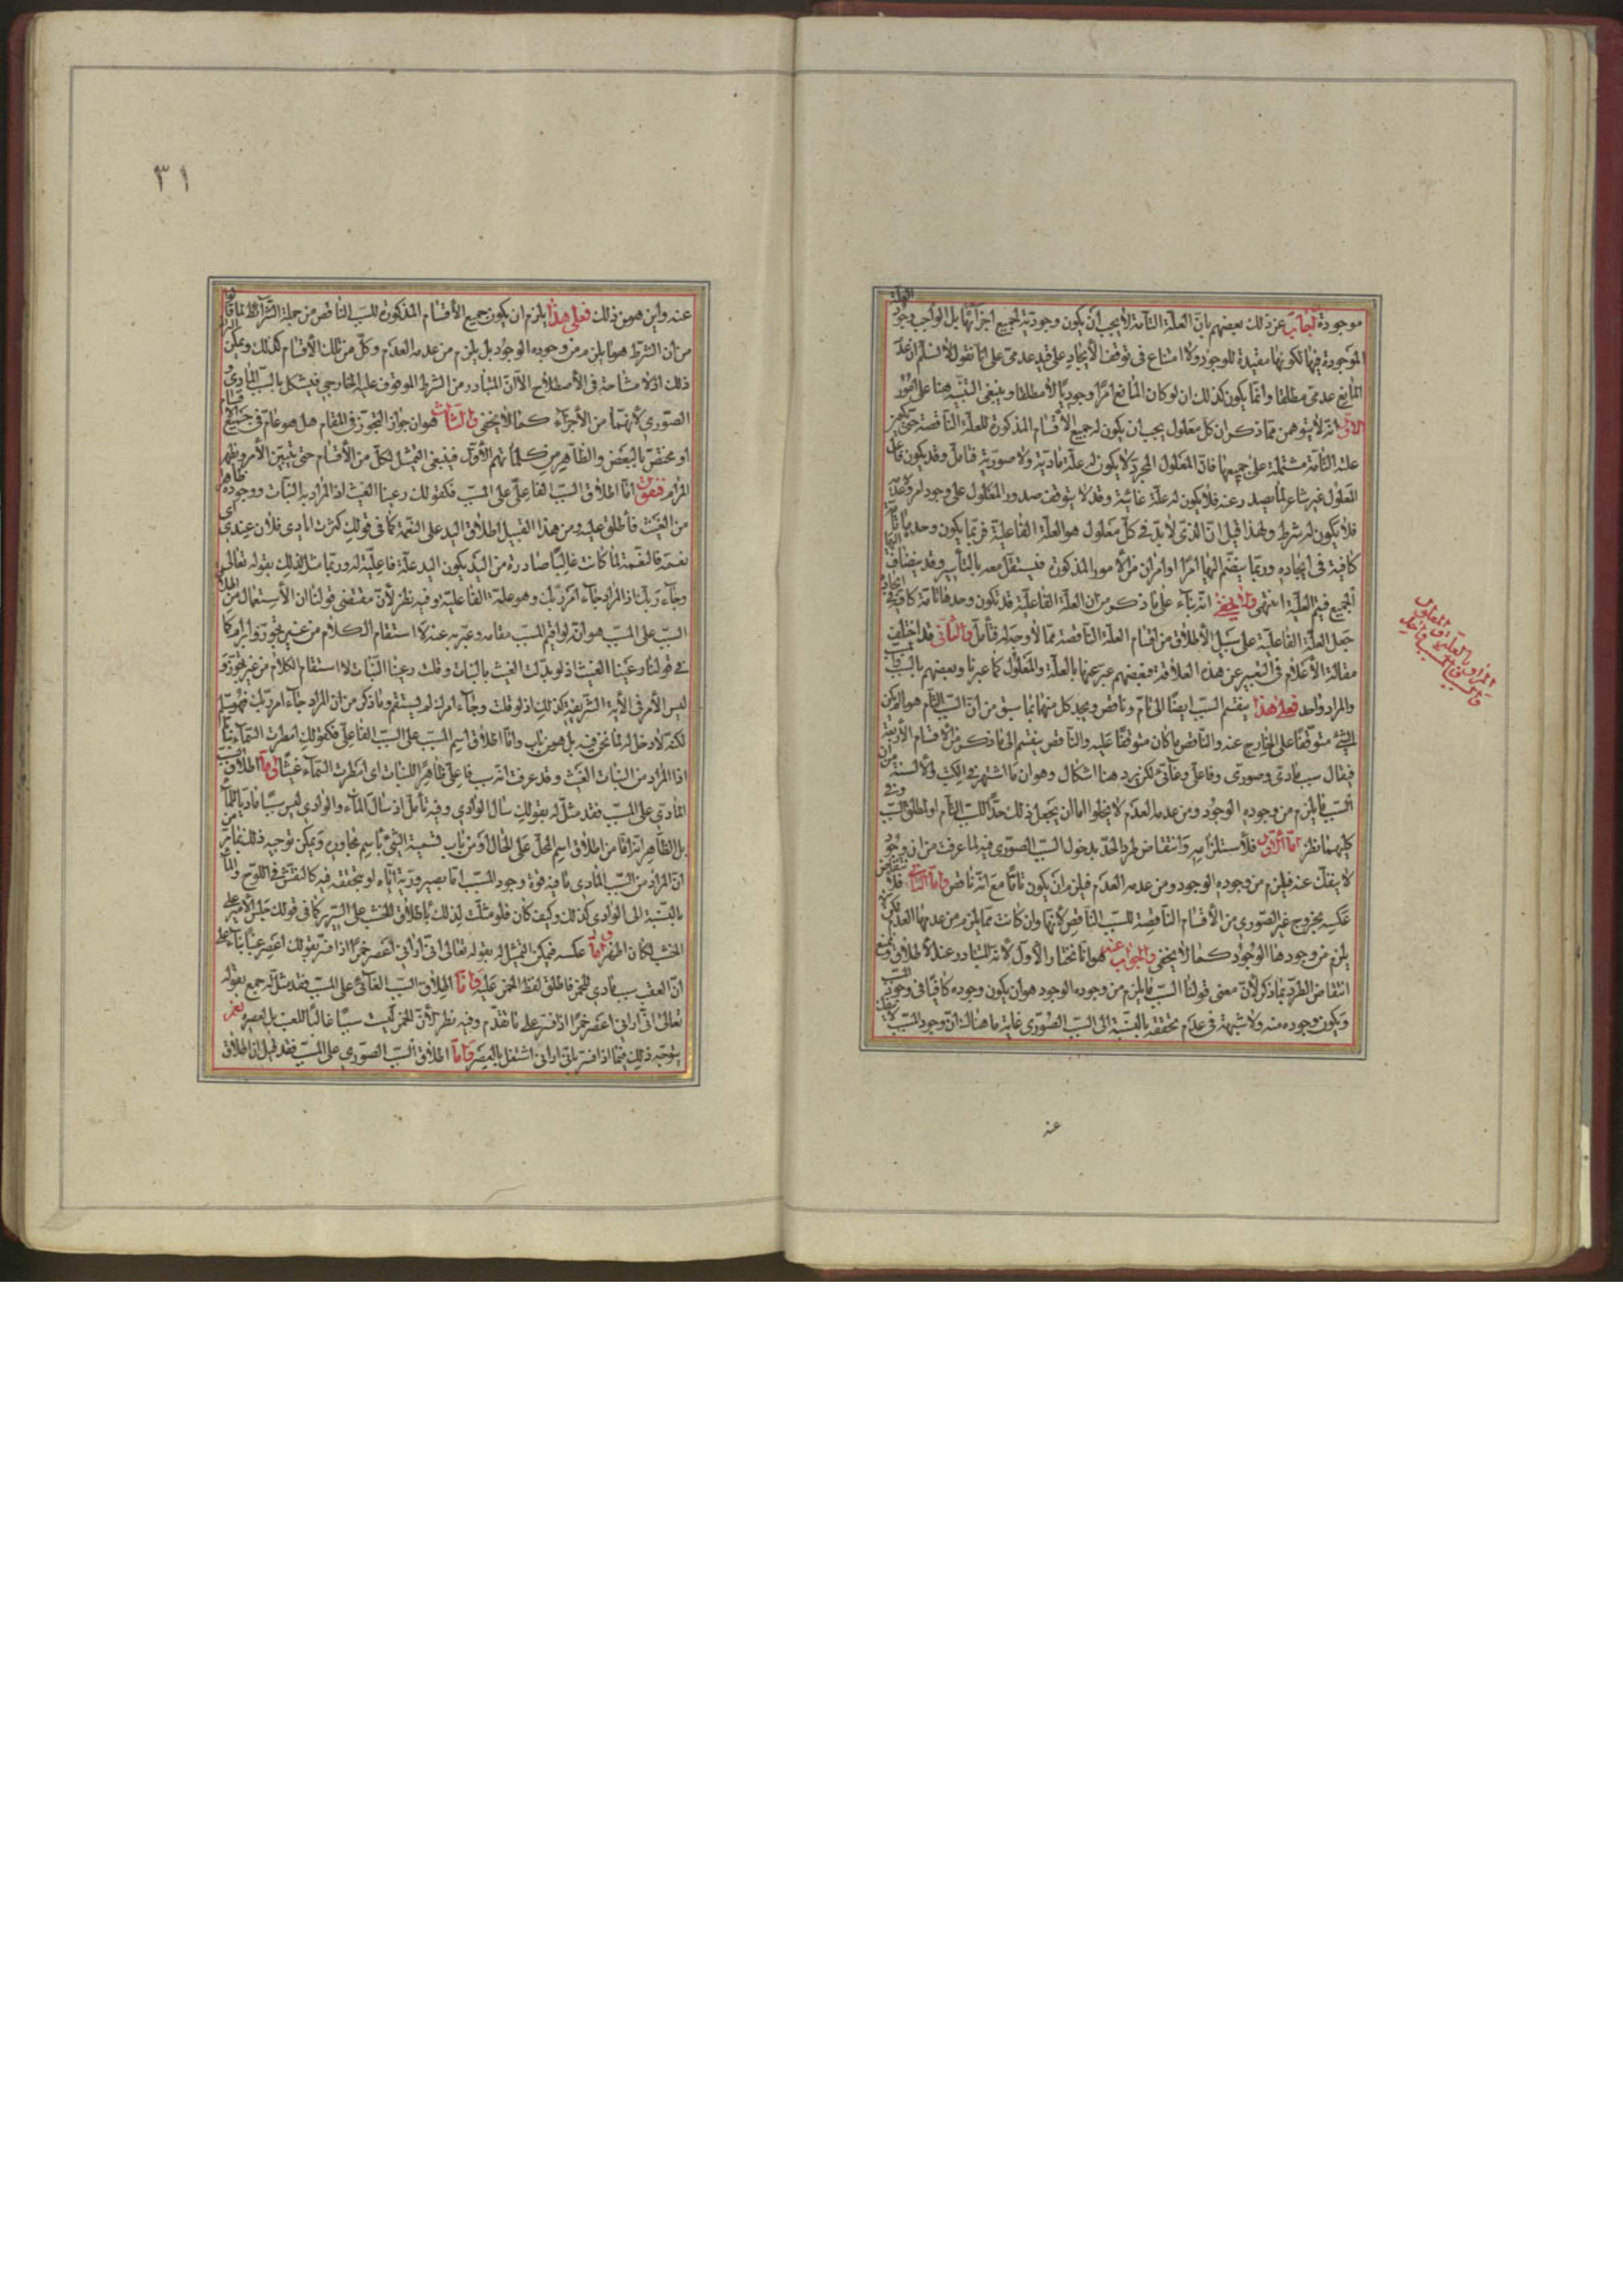 موجودة اجاب عن ذلك بعضهم بان العلة التامة لا يجب ان يكون وجودية لجميع اجزائها بل الواجب وجود العلة
الموجودة فيها لكونها مفيدة للوجود ولا امتناع فى توقف الايجاد على قيد عدمى على انا نقول لا نسلم ان عدم
المانع عدمى مطلقا وانما يكون كذلك ان لو كان المانع امرا وجوديا لا مطلقا وينبغى التنبيه هنا على امور
الاول انه لا يتوهمن مما ذكر ان كل معلول يجب ان يكون له جميع الاقسام المذكورة للعلة الناقصة حتى يكون
علته التامة مشتملة على جميعها فان المعلول المجرد لا يكون له علة مادية ولا صورية فتامل وقد يكون فاعل
المعلول غير شاعر لما يصدر عنه فلا يكون له علة غائية وقد لا يتوقف صدور المعلول على وجود امر وعدمه
فلا يكون له شرط ولهذا قيل ان الذى لا بد فى كل معلول هو العلة الفاعلية فربما يكون وحدها
كافية فى ايجاده وربما ينضم اليها امرا او امران من الامور المذكورة فيستقل معه بالتاثير وقد ينضاف
الجميع فيتم العلية انتهى ولا يخفى انه بناء على ما ذكر من ان العلة الفاعلية قد تكون وحدها تامة كافية فى
جعل العلة الفاعلية على سبيل الاطلاق من اقسام العلة الناقصة مما لا وجه له فتامل والثانى قد اختلفت
مقالة الاعلام فى التعبير عن هذه العلاقة فبعضهم عبر عنها بالعلة والمعلول كما عبرنا وبعضهم بالسبب
والمراد واحد فعلى هذا ينقسم السبب ايضا الى تام وناقص ويحد كل منهما بما سبق من ان السبب التام هو الذى لم يكن
الشئ متوقفا على الخارج عنه والناقص ما كان متوقفا عليه والناقص ينقسم الى ما ذكر من الاقسام الاربعة
فيقال سبب مادى وصورى وفاعلى وغائى لكن يرد هنا اشكال وهو ان ما اشتهر فى الكتب والالسنة من ان
السبب ما يلزم من وجوده الوجود ومن عدمه العدم لا يخلو اما ان يجعل ذلك حدا للسبب التام او لمطلق السبب وفى
كليهما نظر اما الاول فلاستلزامه وانتقاض طرد الحد بدخول السبب الصورى فيه لما عرفت من ان وجود
لا ينفك عنه فيلزم من وجوده الوجود ومن عدمه العدم فيلزم ان يكون تاما مع انه ناقص واما الثانى فلانتقاض
عكسه بخروج غير الصورى من الاقسام الناقصة للسبب الناقص لانها وان كانت مما يلزم من عدمها العدم لكن لا
يلزم من وجودها الوجود كما لا يخفى والجواب عنه هو انا نختار الاول لانه المتبادر عند الاطلاق ونمنع
انتقاض الطرد بما ذكر لان معنى قولنا السبب ما يلزم من وجوده الوجود هو ان يكون وجوده كافيا فى وجود المسبب
ويكون وجوده منه ولا شبهة فى عدم تحققه بالنسبة الى السبب الصورى غاية ما هناك ان وجود المسبب لا ينفك
عنه
المراد بالعلة والمعلول
٣١
عنه واين هو من ذلك فعلى هذا يلزم ان يكون جميع الاقسام المذكورة للسبب الناقص من جملة الشرائط لما قالوا
من ان الشرط هو ما لا يلزم من وجوده الوجود بل يلزم من عدمه العدم وكل من تلك الاقسام كذلك ويمكن
ذلك اذ لا مشاحة فى الاصطلاح الا ان المتبادر من الشرط الموقوف عليه الخارجى فيشكل بالسبب المادى و
الصورى لانهما من الاجزاء كما لا يخفى والثالث هو ان جواز التجوز فى المقام هل هو عام فى جميع الاقسام
او مختص بالبعض والظاهر من كلماتهم الاول فينبغى التمثيل لكل من الاقسام حتى يتبين الامر ويظهر
المرام فنقول اما اطلاق السبب الفاعلى على المسبب فكقولك رعينا الغيث اذ المراد به النبات ووجوده ظاهرا
من الغيث فاطلق عليه ومن هذا القبيل اطلاق اليد على النعمة كما فى قولك كثرت ايادى فلان عندى اى
نعمه فالنعمة لما كانت غالبا صادرة من اليد يكون اليد علة فاعلية له وربما مثل لذلك بقوله تعالى
وجاء ربك اذ المراد جاء امر ربك وهو علته الفاعلية وفيه نظر لان مقتضى قولنا ان الاستعمال من اطلاق
السبب على المسبب هو انه لو اقيم المسبب مقامه وعبر به عنه لاستقام الكلام من غير تجوز وابرام كما
فى قولنا رعينا الغيث اذ لو بدلت الغيث بالنبات وقلت رعينا النبات لاستقام الكلام من غير تجوز و
ليس الامر فى الاية الشريفة كذلك اذ لو قلت وجاء امره لم يستقم وما ذكر من ان المراد جاء امر ربك فهو مسلم
لكنه لا دخل له لما نحن فيه بل هو من باب واما اطلاق اسم المسبب على السبب الفاعلى فكقولك امطرت السماء نباتا
اذا المراد من النبات الغيث وقد عرفت انه سبب فاعلى ظاهرا للنبات اى امطرت السماء غيثا واما اطلاق السبب
المادى على المسبب فقد مثل له بقولك سال الوادى وفيه تامل اذ سال الماء والوادى ليس سببا ماديا للماء
بل الظاهر انه اما من اطلاق اسم المحل على الحال او من باب تسمية الشئ باسم مجاوره ويمكن توجيه ذلك
ان المراد من السبب المادى ما فيه قوة وجود المسبب اما بصيرورته اياه او بتحققه فيه كالنقش فى اللوح والماء
بالنسبة الى الوادى كذلك وكيف كان فلو مثلت لذلك باطلاق الخشب على السرير كما فى قولك جلس الامير على
الخشب لكان اظهر واما عكسه فيمكن التمثيل له بقوله تعالى انى ارانى اعصر خمرا اذا فسر بقولك اعصر عنبا بناء على
ان العنب سبب مادى للخمر فاطلق لفظ الخمر عليه واما اطلاق السبب الغائى على المسبب فقد مثل له جمع بقوله
تعالى انى ارانى اعصر خمرا اذا فسر على ما تقدم وفيه نظر لان الخمر ليست سببا غائيا للعنب بل لعصره نعم
يتوجه ذلك فيما اذا فسر بانى ارانى اشتغل بالعصر واما اطلاق السبب الصورى على المسبب فقد قيل ان اطلاق